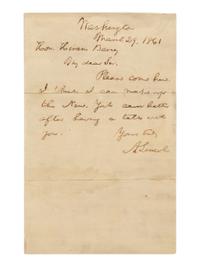 Washington
March 29, 1861
Hon. Hiram Barney
My dear Sir.
Please come here.
I think I can make up
the New-York card better
after having a talk with
you.
Yours truly
A. Lincoln